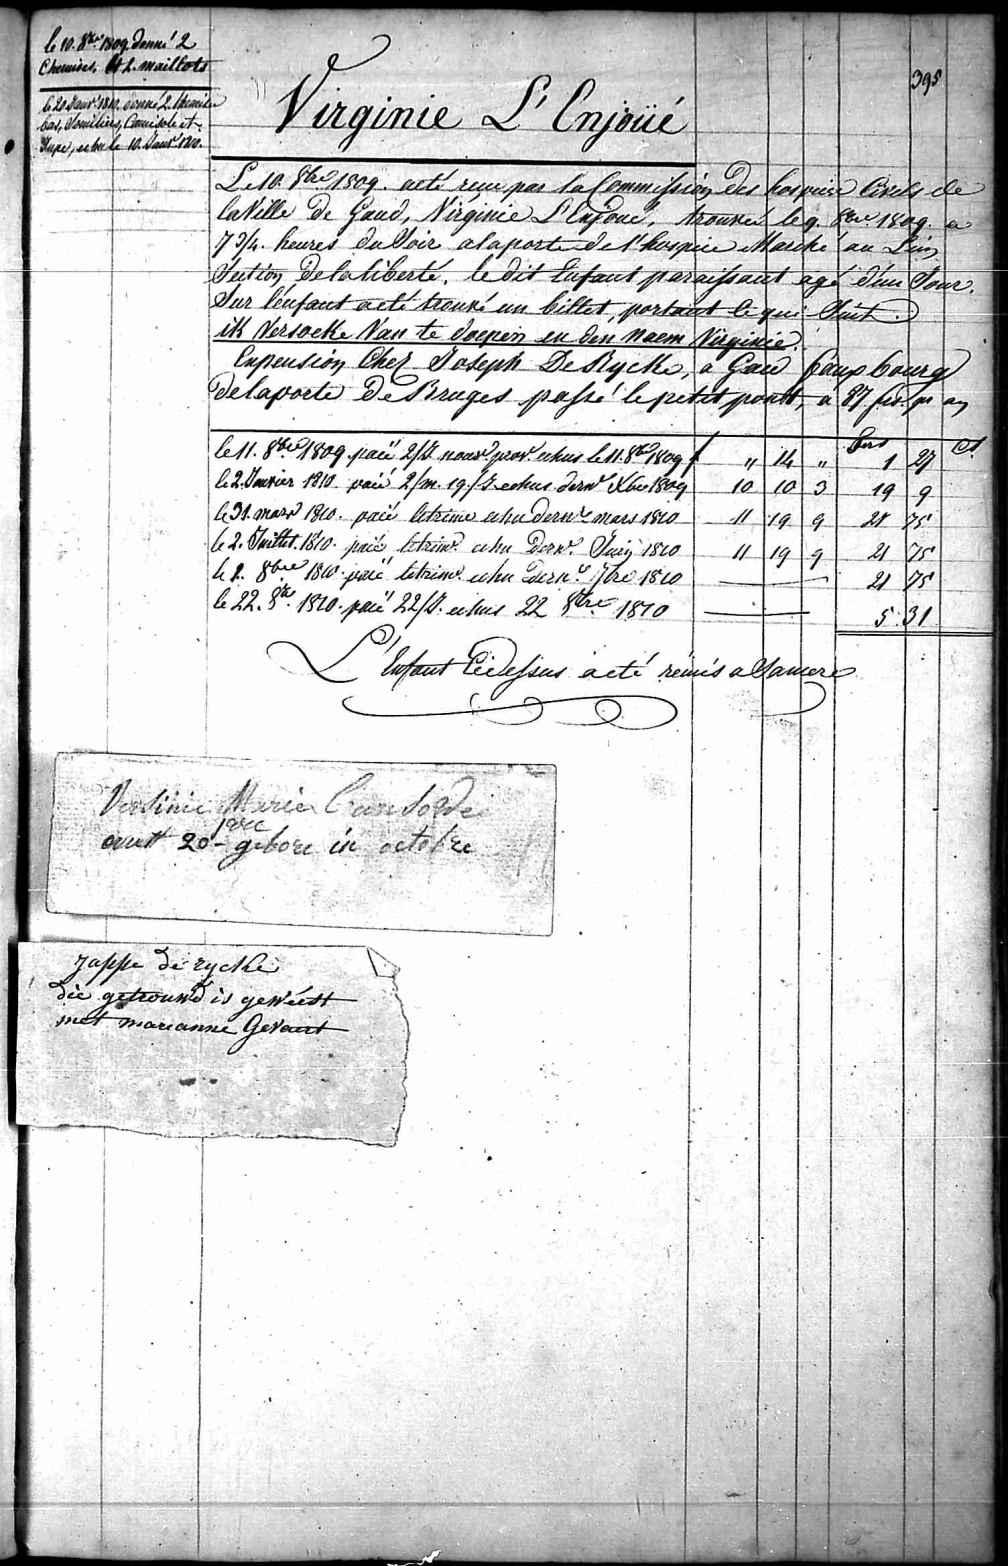 395
le 10. 8bre 1809. donné 2
Chemises, et 2. maillots
le 20 Janvr 1810. donné 2. Chemises
bas, Souliers, Camisole et
Jupe, echu le 10. Janvr 1810.
Virginie L'Enjoüé
Le 10. 8bre 1809. a eté reçu par la Commission des hospices Civils de
la Ville de Gand, Virginie L'Enjoué, trouvée le 9. 8bre 1809. a
7 3/4. heures du Soir a la porte de l'hospice Marché au Lin,
Section de la liberté. le dit Enfant paraissant agé d'un Jour.
Sur l'enfant a eté trouvé un billet, portant ce qui Suit.
ik Versocke Van te doepen en den Naem Virginie.
En pension Chez Joseph De Rycke, a Gand fauxbourg
de la porte De Bruges passé le petit pont, a 87. frs. pr an
frs Ct.
le 11. 8bre 1809. paié 2/J. nour. prov. echus le 11. 8bre 1809 f " 14 " 1 27
le 2. Janvier 1810. paié 2/m. 19./J. echus dernr Xbre 1809 10 10 3 19 9
le 31. mars 1810. paié le trime echu dernr mars 1810 11 19 9 21 75
le 2. Juillet. 1810. paié le trimr. echu dernr. Juin 1810 11 19 9 21 75
le 2. 8bre 1810. paié le trimr. echu dernr. 7bre 1810 21 75
le 22. 8bre. 1810. paié 22/J. echus 22 8bre 1810 5.31
L'Enfant Cidessus a eté remis a Sa mere
Versinie Marie
out 20 jare gebore in octobre
Jappe de rycke
die getrouwd is gewéest
met marianne Gevaert